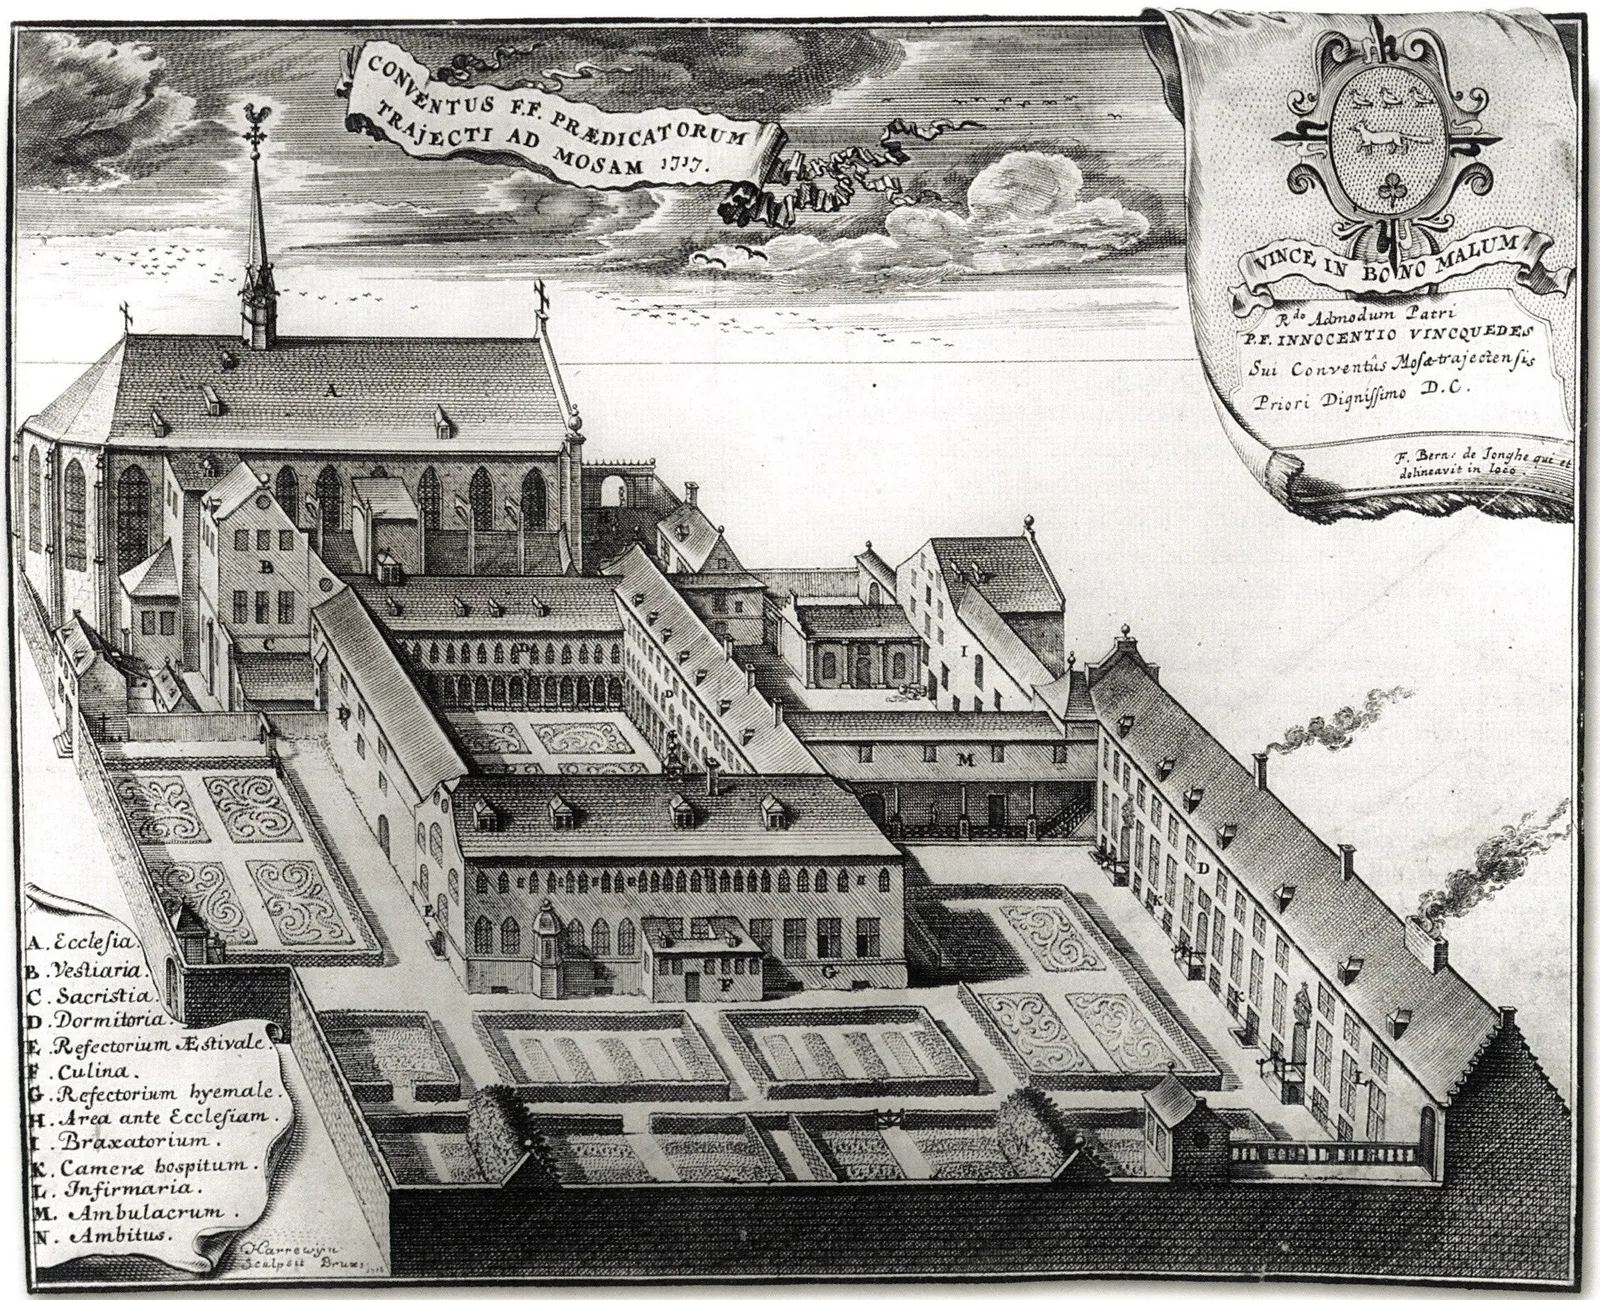 CONVENTUS F.F. PRÆDICATORUM
TRAJECTI AD MOSAM 1717.
VINCE IN BONO MALUM
R.do Admodum Patri
P.F. INNOCENTIO VINCQUEDES
Sui Conventûs Mosæ-trajectensis
Priori Dignissimo D.C.
F. Bern: de Jonghe qui et
delineavit in loco
A
B
C
D
D
D
D
D
E
F
G
I
K
K
L
M
A. Ecclesia.
B. Vestiaria.
C. Sacristia.
D. Dormitoria.
E. Refectorium Æstivale.
F. Culina.
G. Refectorium hyemale.
H. Area ante Ecclesiam.
I. Braxatorium.
K. Cameræ hospitum.
L. Infirmaria.
M. Ambulacrum.
N. Ambitus.
Harrewyn
Sculpsit Brux: